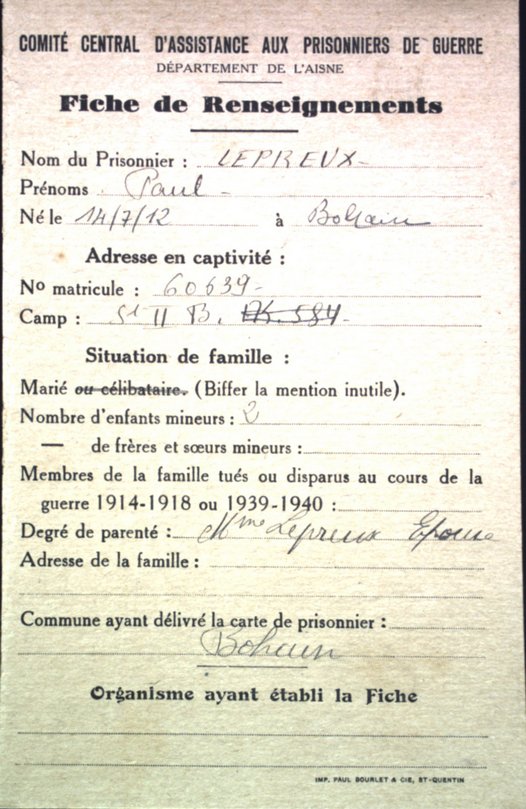 COMITÉ CENTRAL D'ASSISTANCE AUX PRISONNIERS DE GUERRE
DÉPARTEMENT DE L'AISNE
Fiche de Renseignements
Nom du Prisonnier : LEPREUX-
Prénoms Paul -
Né le 14/7/12 à Bohain
Adresse en captivité :
No matricule : 60639-
Camp : St II B. AK. 584-
Situation de famille :
Marié ou célibataire. (Biffer la mention inutile).
Nombre d'enfants mineurs : 2
— de frères et sœurs mineurs :
Membres de la famille tués ou disparus au cours de la
guerre 1914-1918 ou 1939-1940 :
Degré de parenté : Mme Lepreux Epouse
Adresse de la famille :
Commune ayant délivré la carte de prisonnier :
Bohain
Organisme ayant établi la Fiche
IMP. PAUL BOURLET & CIE, ST-QUENTIN